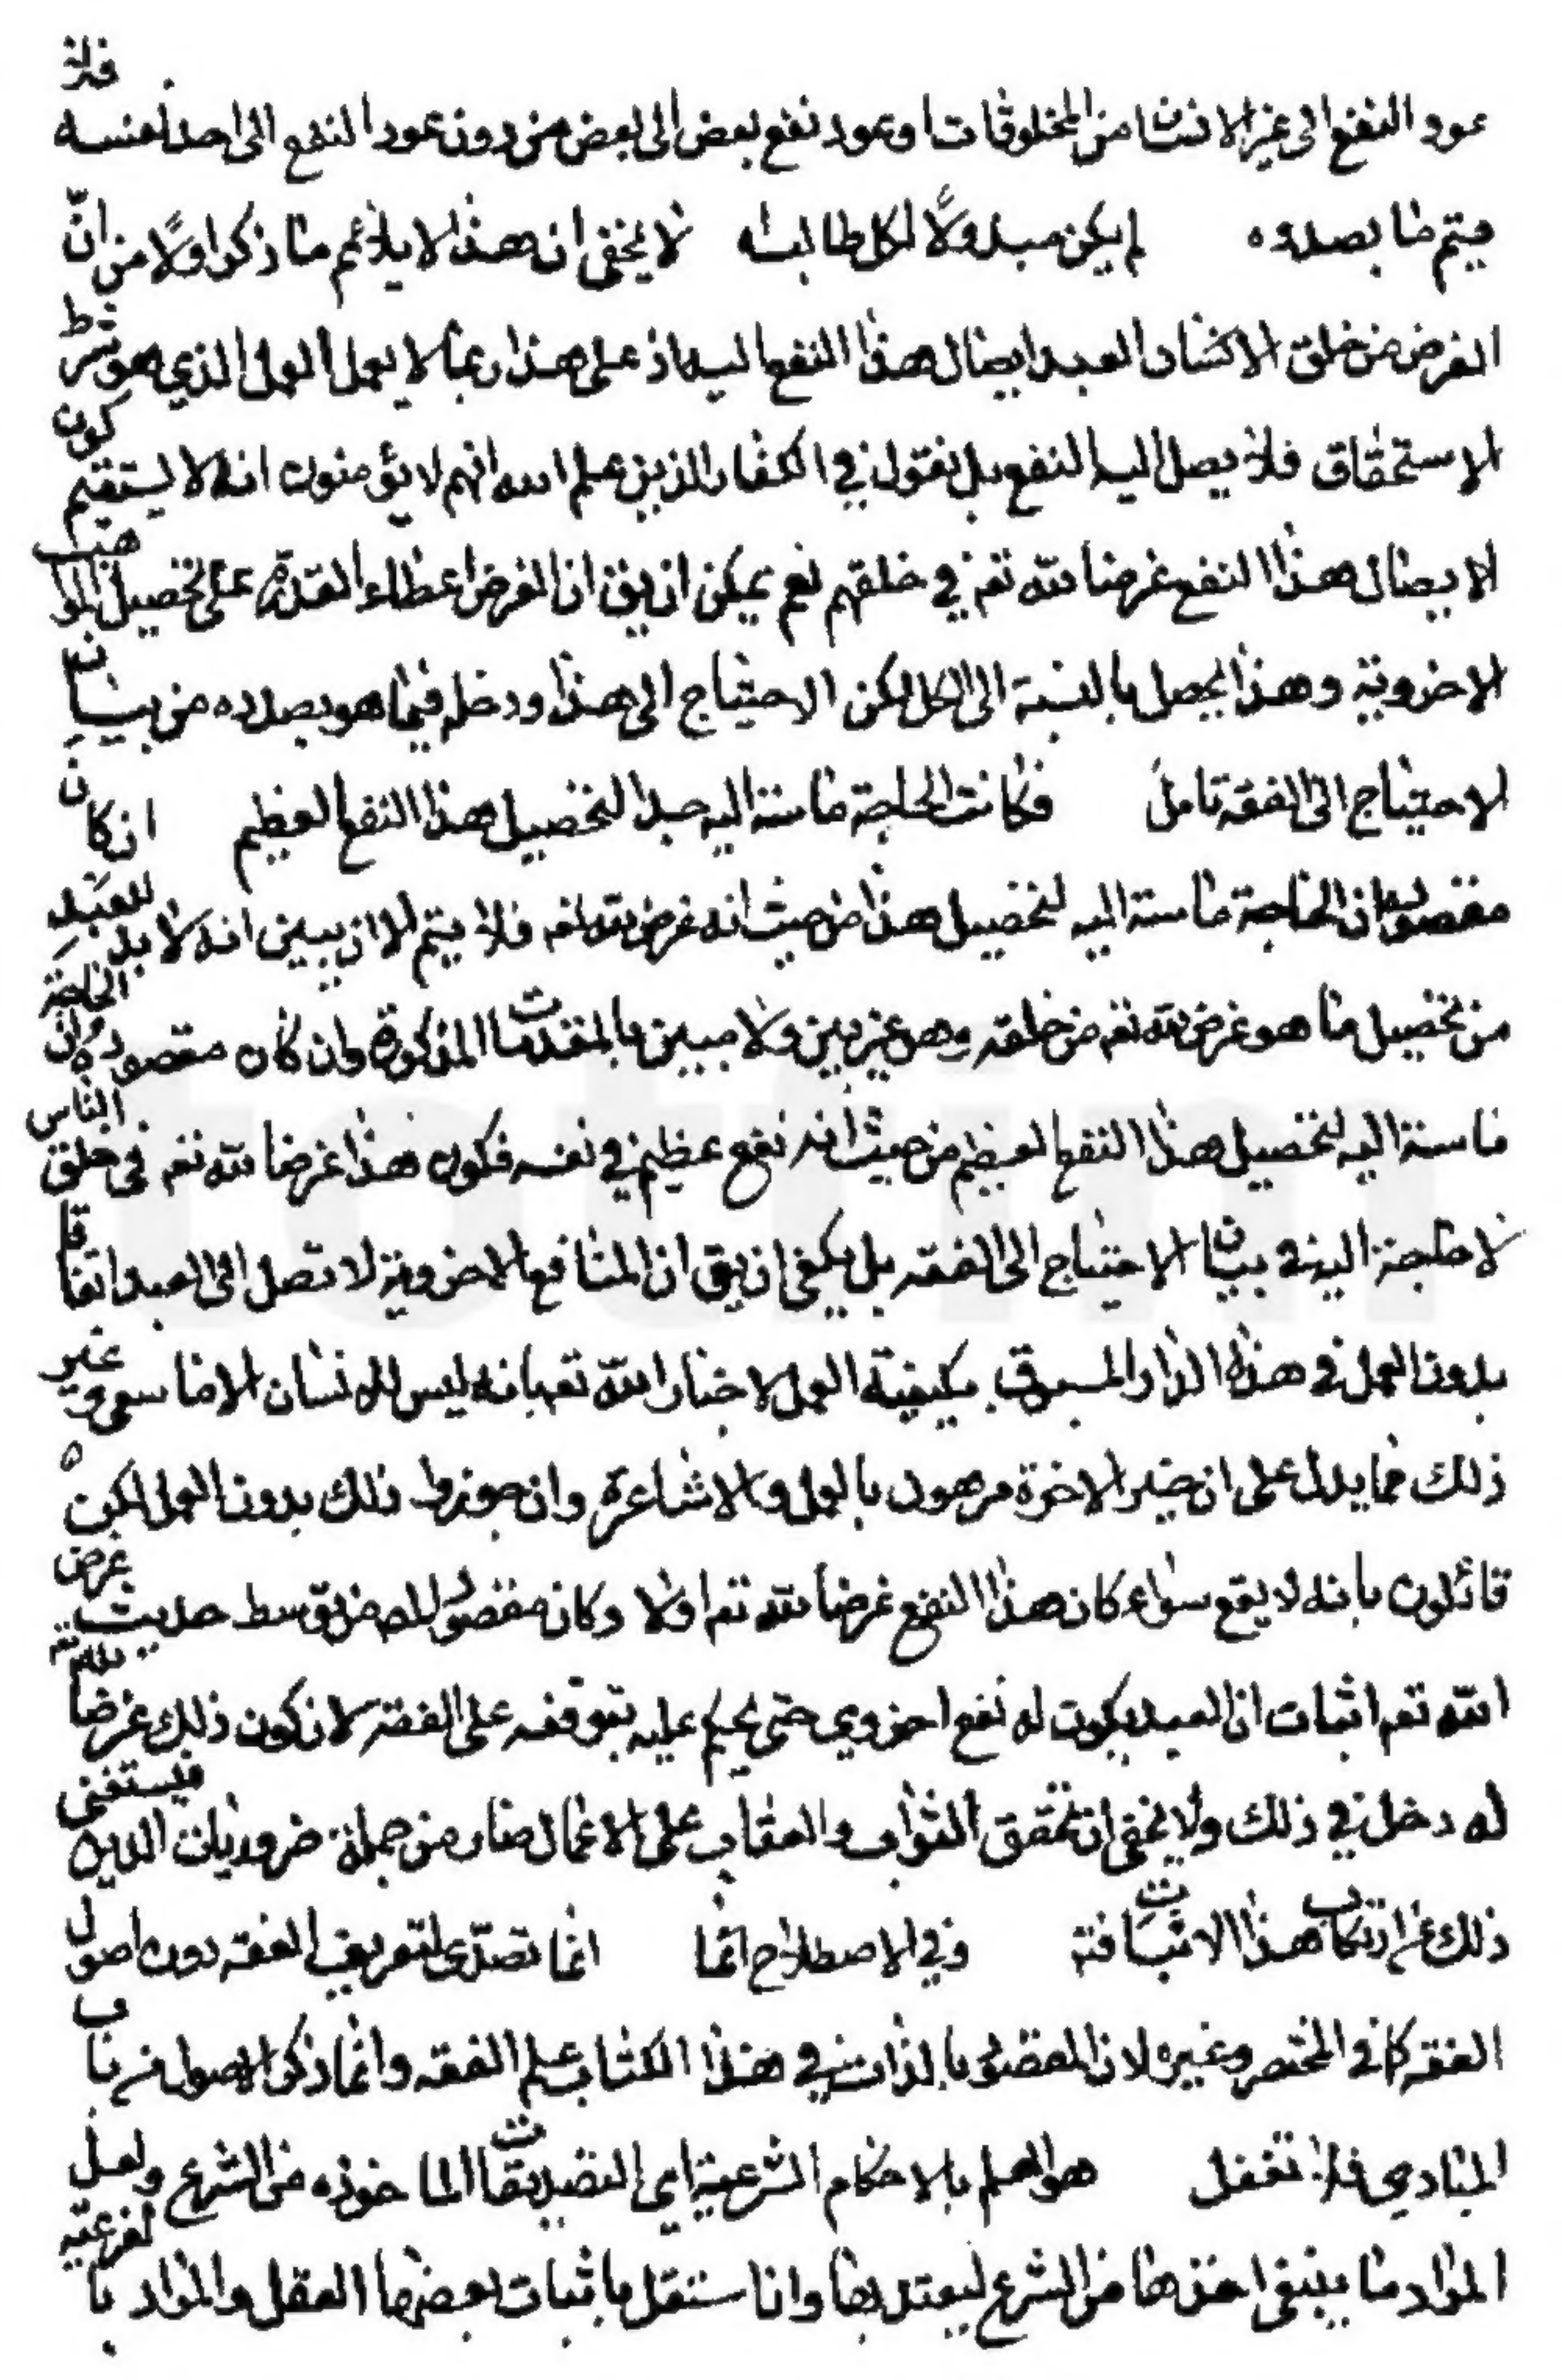 عود النفع الى غير الانسان من المخلوقات او عود نفع بعض الى بعض من دون عود النفع الى احد لنفسه فلا
يتم ما بصدده لم يكن مبذولا لكل طالب اه لا يخفى ان هذا لا يلائم ما ذكر اولا من انّ
الغرض من خلق الافعال العبد ايصال هذا النفع اليه اذ على هذا ربما لا يعمل العمل الذي هو شرط
الاستحقاق فلا يصل اليه النفع بل نقول في الكفار الذين علم الله انهم لا يؤمنون انه لا يستقيم كون
الايصال هذا النفع غرضا لله تعم في خلقهم نعم يمكن ان يق ان الغرض اعطاء القدرة على تحصيل المواهب
الاخروية وهذا يحصل بالنسبة الى الكل لكن الاحتياج الى هذا ودخله فيما هو بصدده من بيان
الاحتياج الى الفقه تامل فكانت الحاجة ماسة اليه جدا لتحصيل هذا النفع العظيم ان كان
مقصوده ان الحاجة ماسة اليه لتحصيل هذا من حيث انه غرض لله تعم فلا يتم الا ان يبين انه لا بد للعبد
من تحصيل ما هو غرض لله تعم من خلقه وهو غير بين ولا مبين بالمقدمات المذكورة وان كان مقصوده ان الحاجة
ماسة اليه لتحصيل هذا النفع العظيم من حيث انه نفع عظيم في نفسه فكون هذا غرضا لله تعم في خلق الناس
لا حاجة اليه في بيان الاحتياج الى الفقه بل يكفي ان يق ان المنافع الاخروية لا تصل الى العبد اتفاقا
بدون العمل في هذه الدار المسبوق بكيفية العمل لاخبار الله تعم بانه ليس للانسان الا ما سعى وغير
ذلك مما يدل على ان خير الاخرة مرهون بالعمل والاشاعرة وان جوزوا ذلك بدون العمل لكن
قائلون بانه لا يقع سواء كان هذا النفع غرضا لله تعم اولا وكان مقصود المص من توسط حديث غرض
الله تعم اثبات ان العبد يكون له نفع اخروي حتى يحكم عليه بتوقفه على الفقه لا ان كون ذلك غرضا لله تعم
له دخل في ذلك ولا يخفى ان تحقق الثواب والعقاب على الاعمال صار من جملة ضروريات الدين فيستغنى
ذلك عن ارتكاب هذا الاثبات فته وفي الاصطلاح انما انما تصدّى لتعريف الفقه دون اصول
الفقه كما في المختصر وغيره لان المقصود بالذات في هذا الكتاب علم الفقه وانما ذكر الاصول من باب
المبادي فلا تغفل هو العلم بالاحكام الشرعية اي التصديقات الماخوذه من الشرع ولعل
المراد ما ينبغي اخذها من الشرع ليعتد بها وان استقل باثبات بعضها العقل والمراد بالفرعية